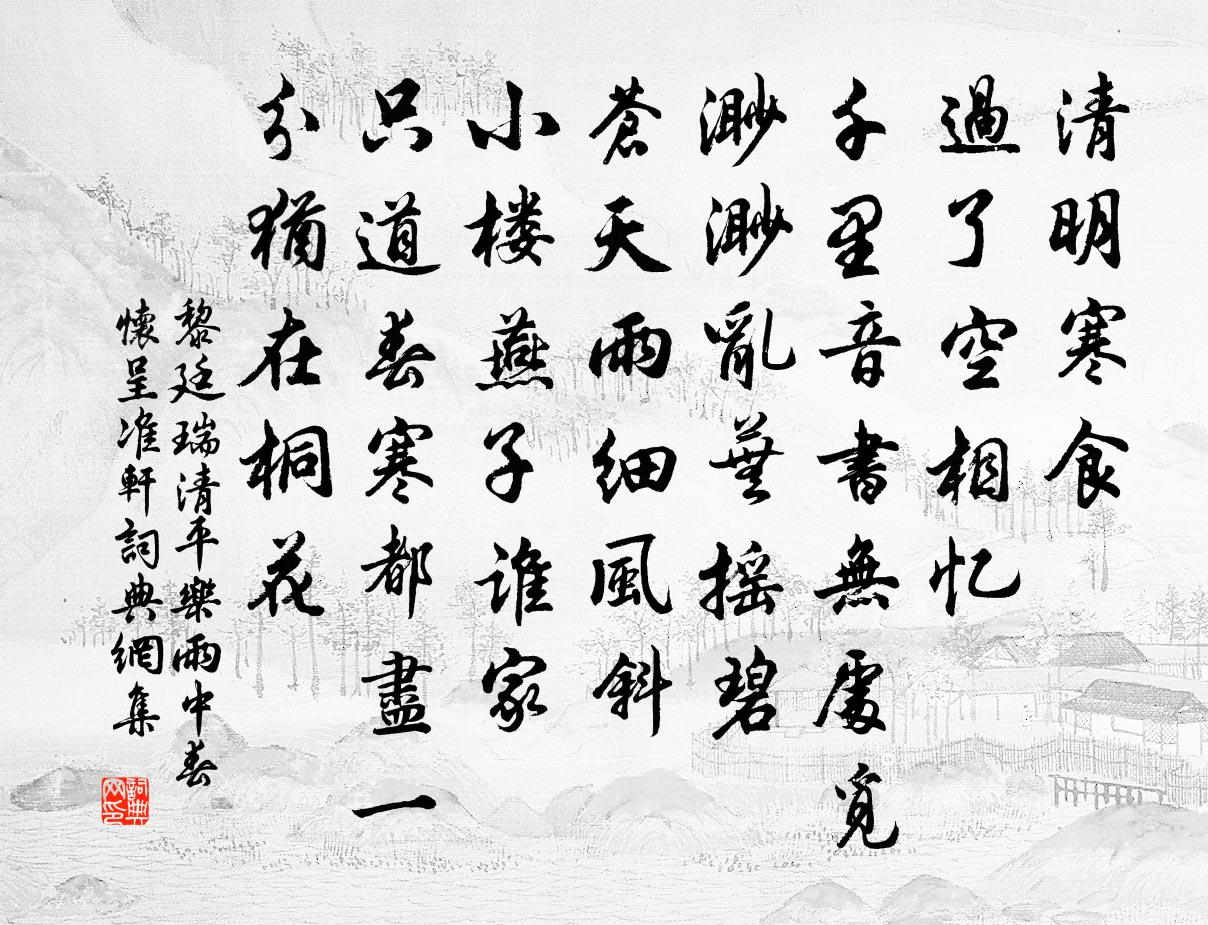 清明寒食
過了空相忆
千里音書無處覓
渺渺亂蕪摇碧
蒼天雨細風斜
小楼燕子谁家
只道春寒都盡一
分猶在桐花
黎廷瑞清平樂雨中春
懷呈准軒詞典網集
詞典网印